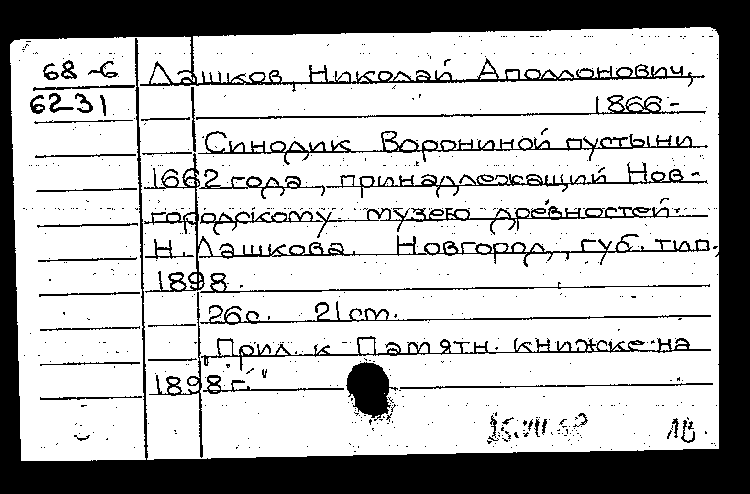 68-6 Лашков, Николай Аполлонович,
62-31 1866-
Синодик Ворониной пустыни
1662 года, принадлежащий Нов-
городскому музею древностей.
Н. Лашкова. Новгород, губ. тип.,
1898.
26с. 21 cm.
"Прил. к Памятн. книжке на
1898 г."
ЛВ.